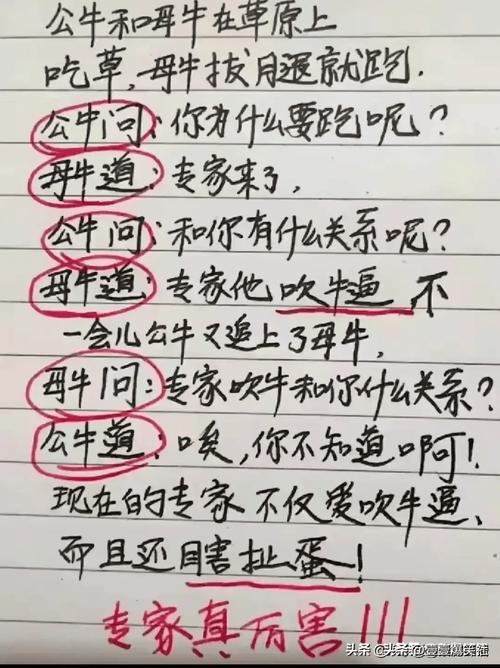 公牛和母牛在草原上
吃草,母牛拔月退就跑.
公牛问:你为什么要跑呢?
母牛道:专家来了,
公牛问:和你有什么关系呢?
母牛道:专家他吹牛逼 不
一会儿公牛又追上了母牛,
母牛问:专家吹牛和你什么关系?
公牛道:唉,你不知道啊!
现在的专家不仅爱吹牛逼、
而且还瞎扯蛋!
专家真厉害!!!
头条 @壹壹爆笑猫